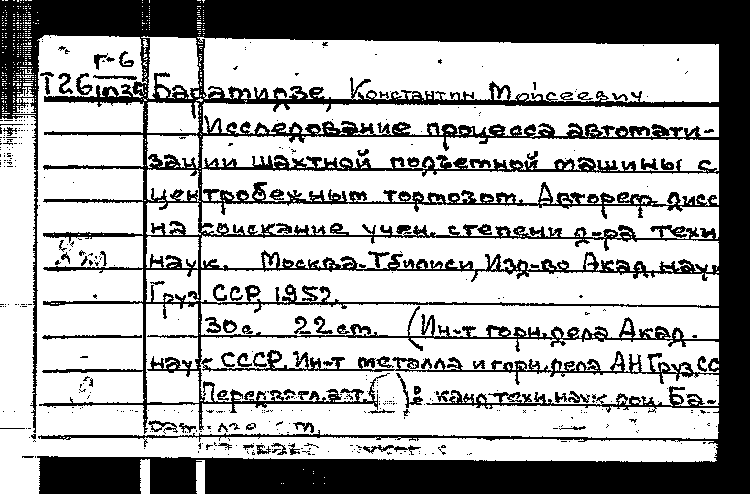 Г-6
Т26
Баратидзе, Константин Моисеевич
Исследование процесса автомати-
зации шахтной подъемной машины с
центробежным тормозом. Автореф. дисс
на соискание учен. степени д-ра техн
наук. Москва-Тбилиси, Изд-во Акад. наук
Груз. ССР, 1952.
30 с. 22 см. (Ин-т горн. дела Акад.
наук СССР. Ин-т металла и горн. дела АН Груз. СС
Перед загл. авт.: канд. техн. наук, доц. Ба-